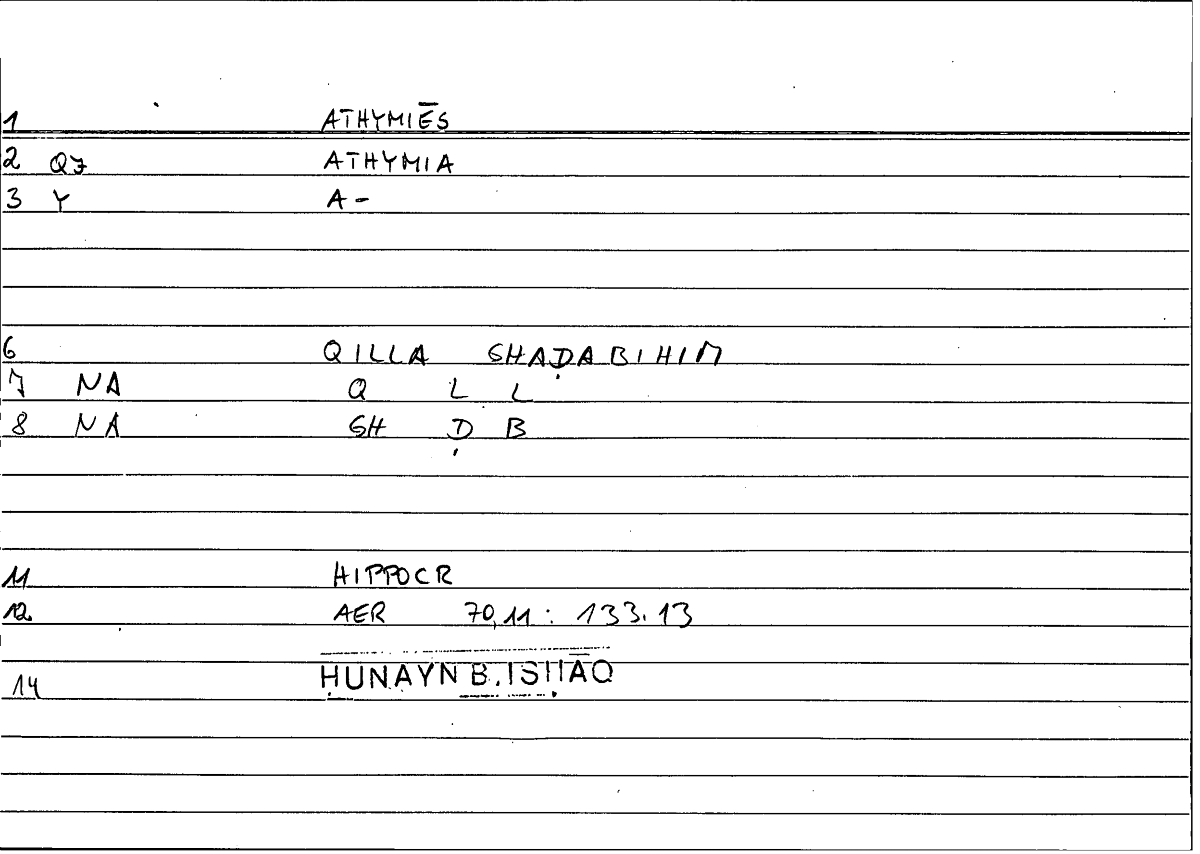 1 ATHYMIĒS
2 Q7 ATHYMIA
3 Y A -
6 QILLA SHAḌABIHIM
7 NA Q L L
8 NA SH Ḍ B
11 HIPPOCR
12 AER 70,11 : 133.13
14 ḤUNAYN B. ISḤĀQ